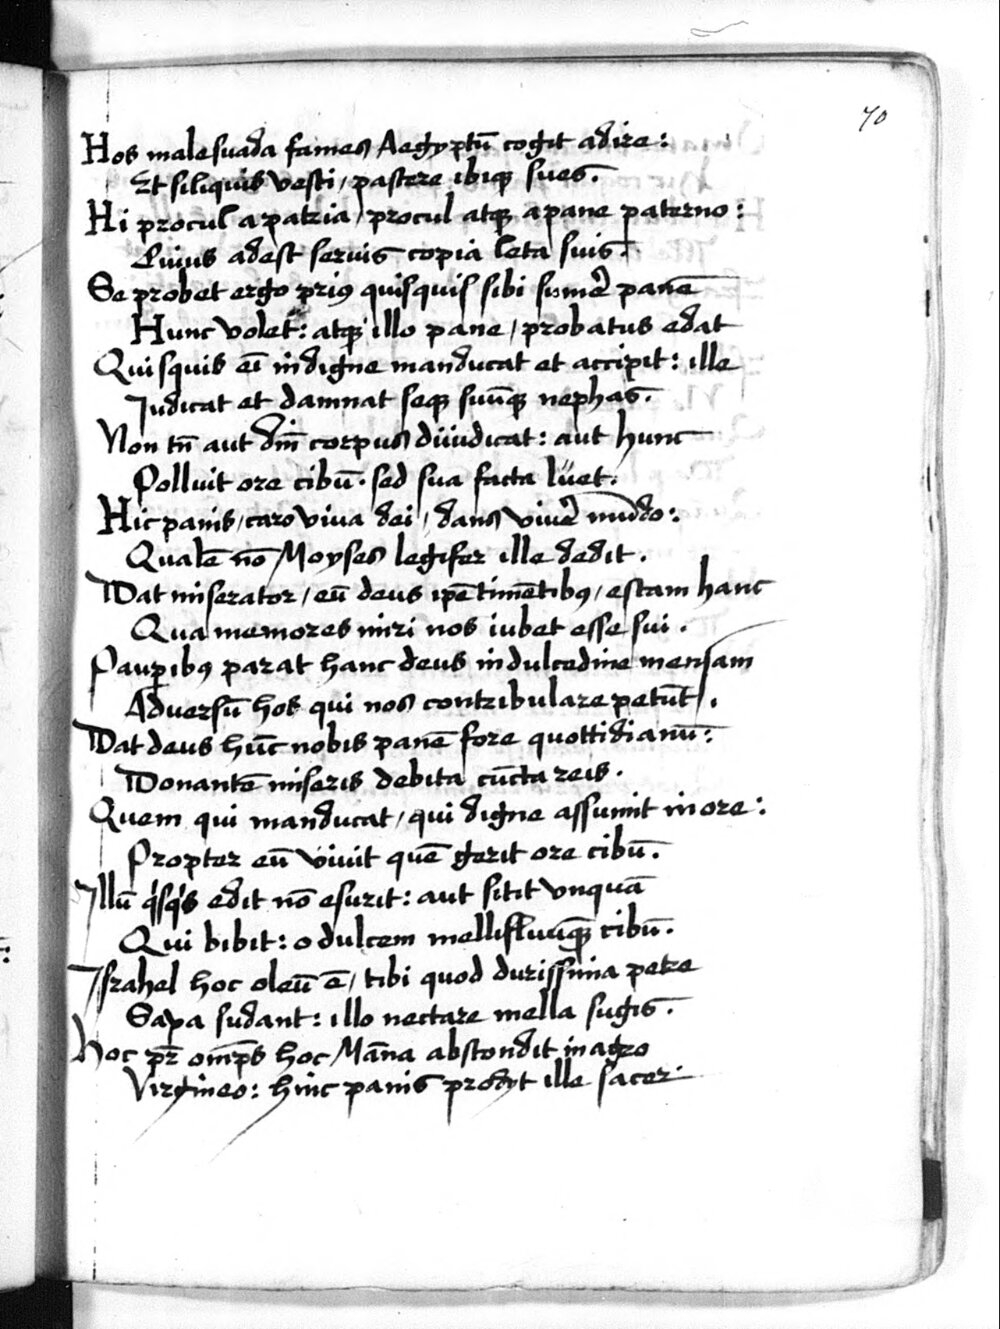 70
Hos malesuada fames Aegyptū cogit adire:
Et siliquis vesci / pascere ibiqꝫ sues.
Hi procul a patria / procul atqꝫ a pane paterno:
Cuius adest seruis copia leta suis.
Se probet ergo priꝰ quisquis sibi sumē panē
Hunc volet: atqꝫ illo pane / probatus edat
Quisquis eī indigne manducat et accipit: ille
Iudicat et damnat seqꝫ suūqꝫ nephas.
Non tn̄ aut dn̄i corpus diiudicat: aut hunc
Polluit ore cibū. sed sua facta luet.
Hic panis / caro viua dei / dans viuē mūdo:
Qualē nō Moyses legifer ille dedit.
Dat miserator / eū deus ip̄e timētibꝰ / escam hanc
Qua memores miri nos iubet esse sui.
Paup̄ibꝰ parat hanc deus in dulcedine mensam
Aduersū hos qui nos contribulare petūt /.
Dat deus hūc nobis panē fore quottidianū:
Donantē miseris debita cūcta reis.
Quem qui manducat / qui digne assumit in ore:
Propter eū viuit quē gerit ore cibū.
Illū qⁱsqⁱs edit nō esurit: aut sitit vnquā
Qui bibit: o dulcem mellifluūqꝫ cibū.
Israhel hoc oleū ē / tibi quod durissima petre
Saxa sudant: illo nectare mella sugis.
Hoc pr̄ omp̄s hoc Māna abscondit in agro
Virgineo: hinc panis prodijt ille sacer.